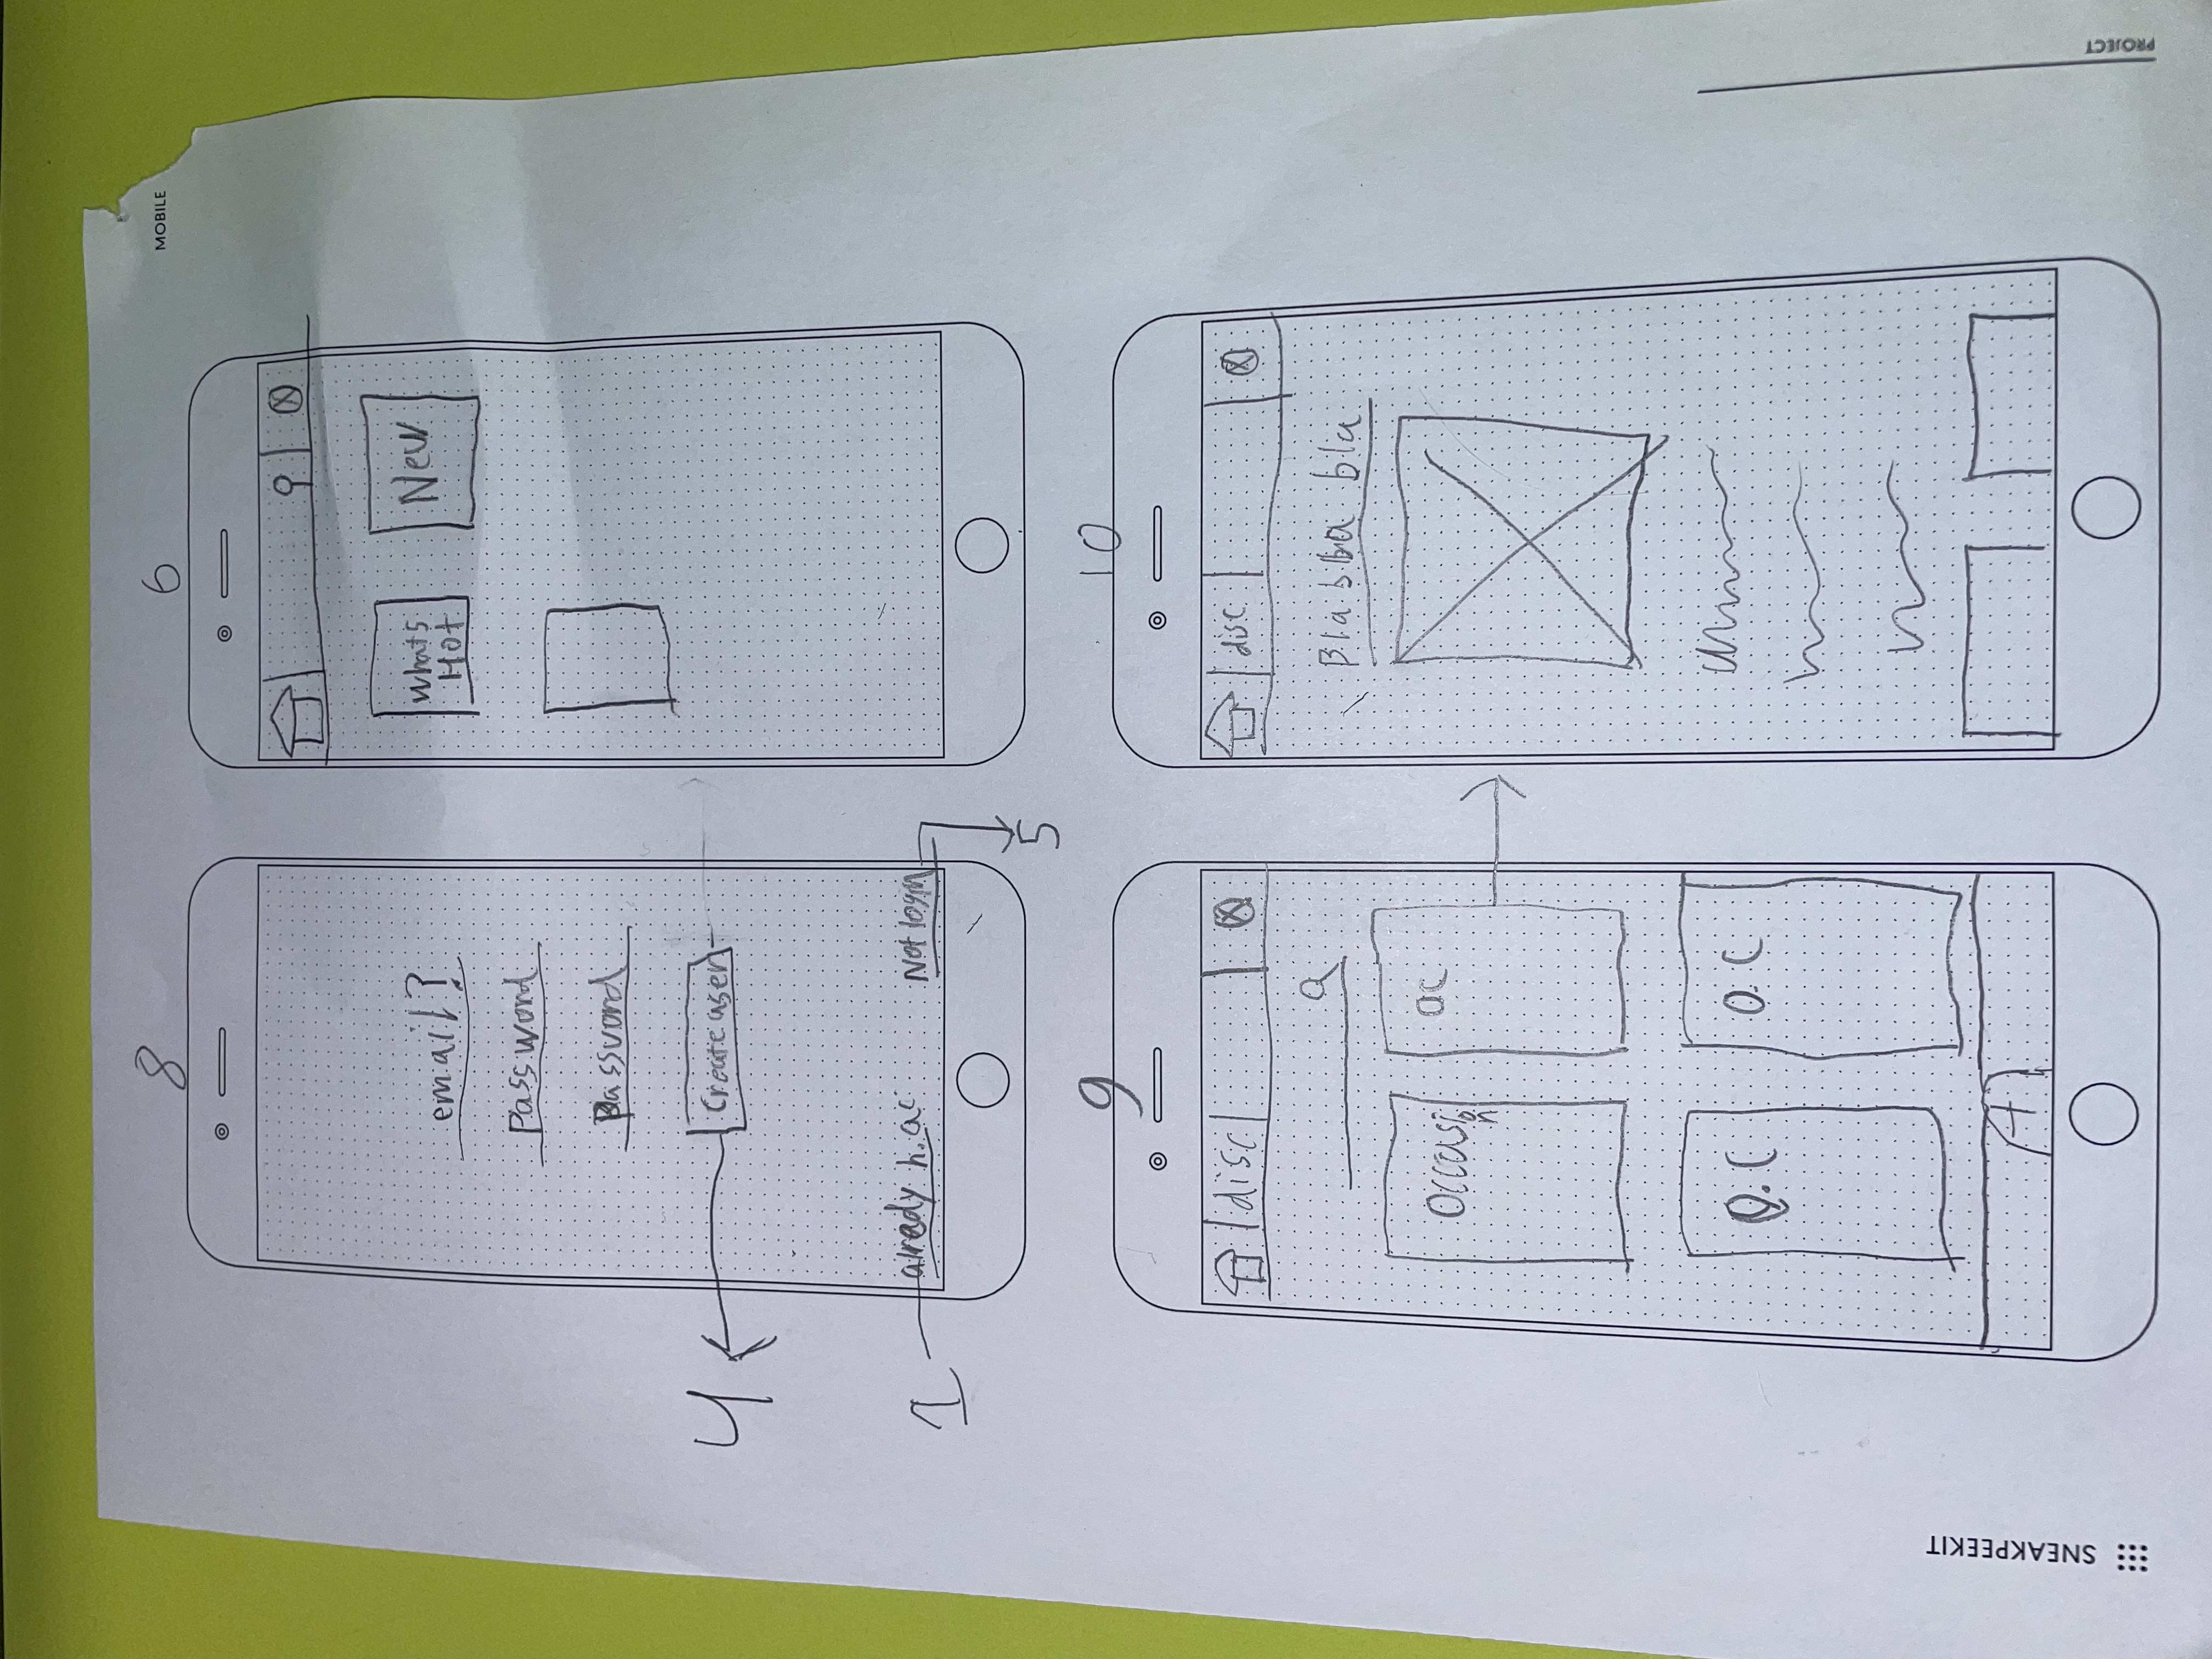 MOBILE
8
email?
Password
Password
Create user
4
alredy h. ac
Not login
1
5
6
whats
Hot
New
9
disc
Occasion
OC
O.C
O.C
10
disc
Bla blba bla
SNEAKPEEKIT
PROJECT